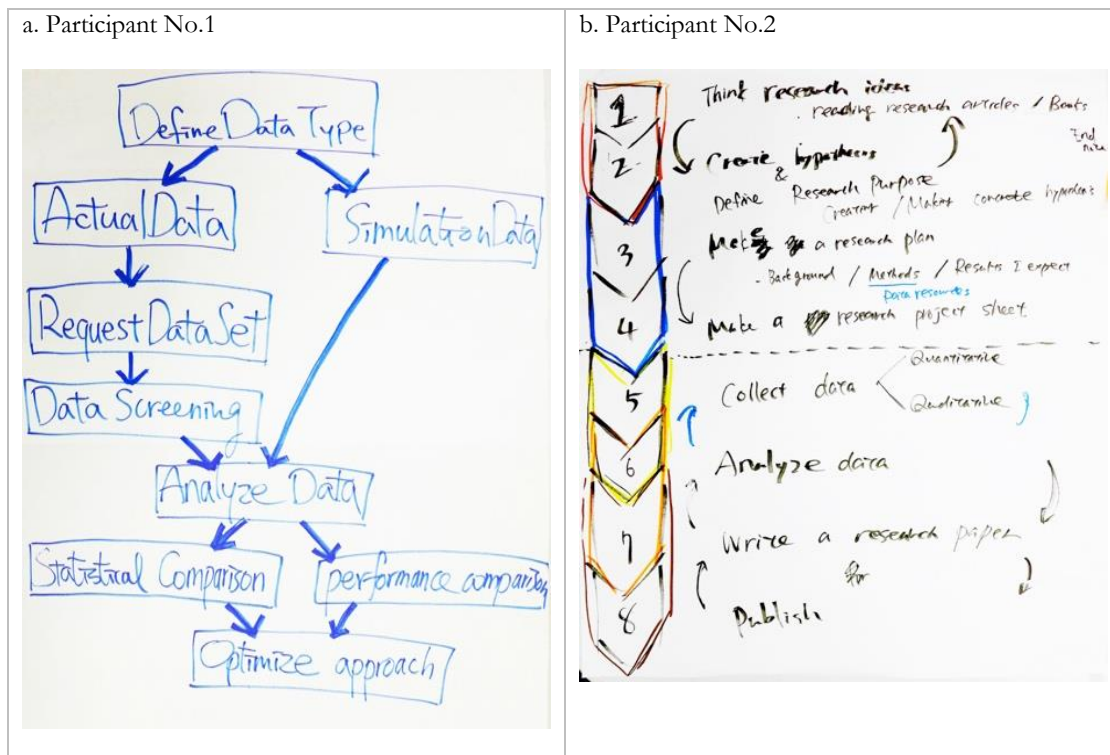 a. Participant No.1
Define Data Type
Actual Data
Simulation Data
Request Data Set
Data Screening
Analyze Data
Statistical Comparison
performance comparison
Optimize approach
b. Participant No.2
1
Think research ideas
. reading research articles /
End note
2
Create hypotheses
&
Define Research Purpose
Creating / Making concrete hypothesis
3
Make a research plan
- Background / Methods / Results I expect
Data resources
4
Make a research project sheet
5
Collect data
Quantitative
Qualitative
6
Analyze data
7
Write a research paper
for
8
Publish